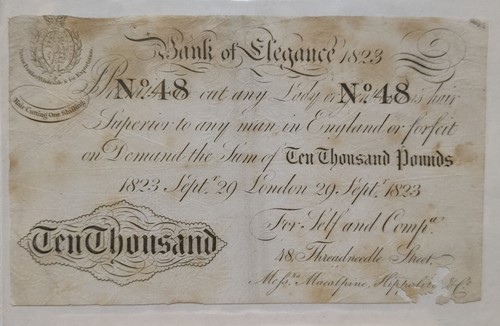 Bank of Elegance 1823
I Promise to cut any Lady or Gent.s hair
No. 48 No. 48
Superior to any man in England or forfeit
on Demand the Sum of Ten Thousand Pounds
1823 Sept.r 29 London 29 Sept.r 1823
For Self and Comp.y
Ten Thousand
48 Threadneedle Street,
Mess.rs Macalpine, & Co
Hair Cutting One Shilling